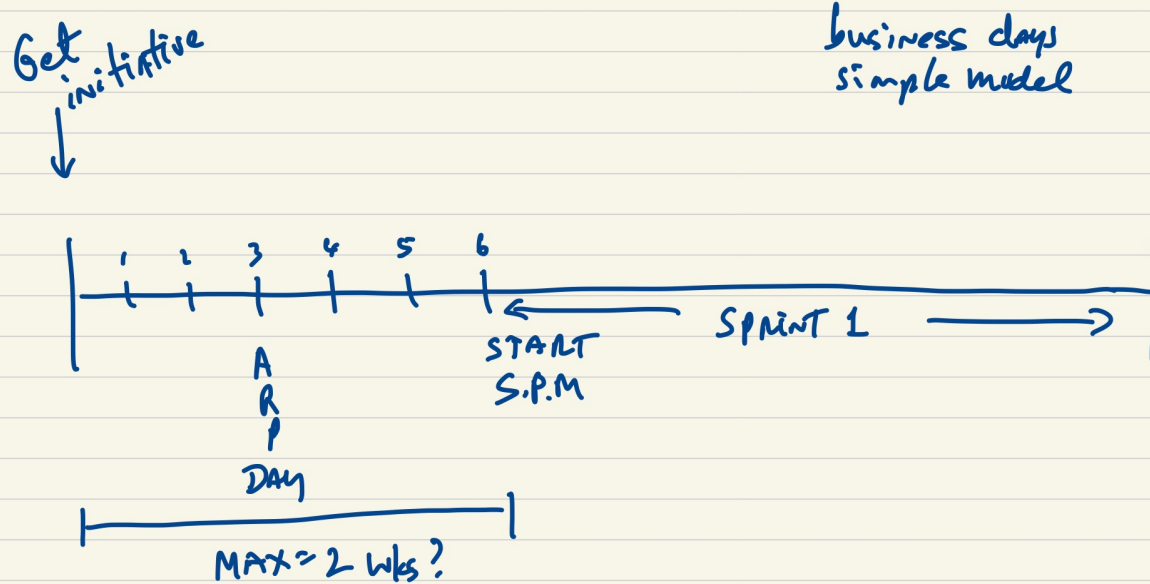 Get
initiative
business days
simple model
1 2 3 4 5 6
SPRINT 1
START
S.P.M
A
R
P
DAY
MAX = 2 wks?